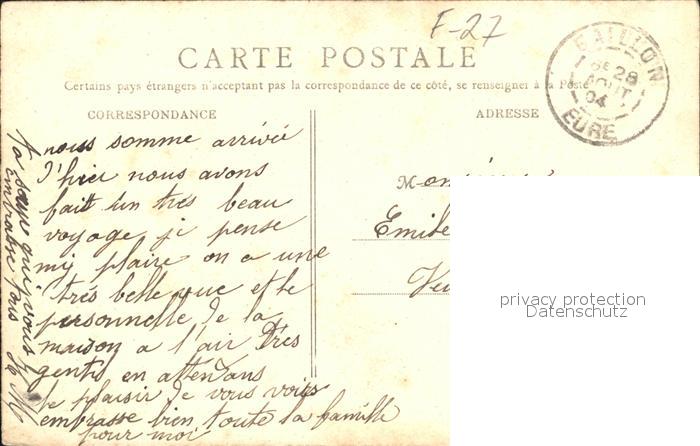 F-27
CARTE POSTALE
Certains pays étrangers n'acceptant pas la correspondance de ce côté, se renseigner à la Poste
GAILLON
28
AOUT
04
EURE
CORRESPONDANCE
ADRESSE
nous somme arrivée
d'hier nous avons
fait un tres beau
voyage je pense
my plaire on a une
trés belle vue et le
personnelle de la
maison a l'air Très
gentis en attendans
le plaisir de vous voirs
embrasse bien toute la famille
pour moi
Ta soeur qui vous
embrasse tous
Emile
privacy protection
Datenschutz